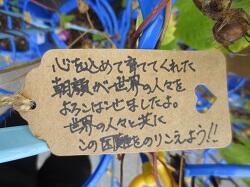 心を込めて育ててくれた
朝顔が世界の人々を
よろこばせましたよ。
世界の人々と共に
この困難をのりこえよう!!